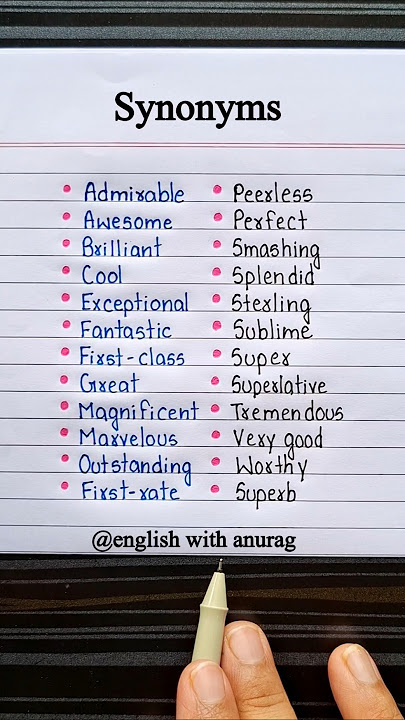 Synonyms
• Admirable • Peerless
• Awesome • Perfect
• Brilliant • Smashing
• Cool • Splendid
• Exceptional • Sterling
• Fantastic • Sublime
• First-class • Super
• Great • Superlative
• Magnificent • Tremendous
• Marvelous • Very good
• Outstanding • Worthy
• First-rate • Superb
@english with anurag